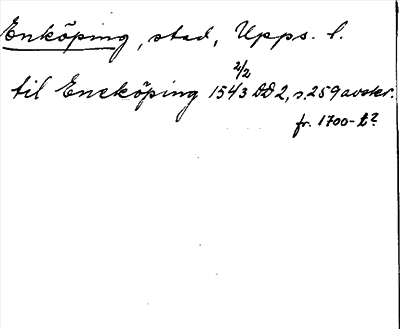 Enköping, stad, Upps. l.
2/2
til Eneköping 1543 DD 2, s. 259 avskr.
fr. 1700-t?